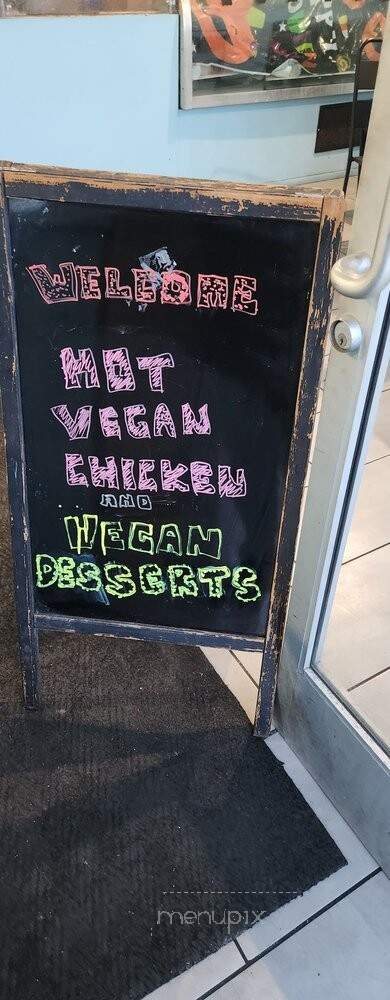 WELCOME
HOT
VEGAN
CHICKEN
AND
VEGAN
DESSERTS
menupix